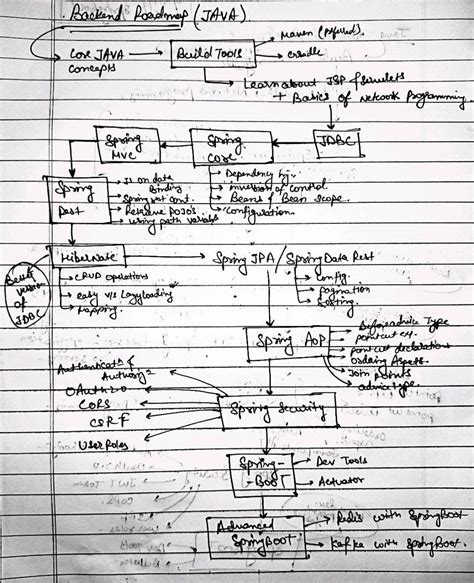 Backend Roadmap (JAVA)
Core JAVA
concepts
Build Tools
Maven (Preferred)
Gradle
Learn about JSP & servlets
+ Basics of Network Programming
JDBC
Spring
Core
Dependency Inj.
inversion of control.
Beans & Bean scope.
Configuration.
Spring
MVC
Spring
Rest
data
Binding
Spring rest cont.
Retrieve POJO's
using path variables
Hibernate
Better
version
of
JDBC
CRUD operations
easy v/s Lazyloading
Mapping.
Spring JPA / Spring Data Rest
Config.
pagination
Sorting.
Spring AOP
Type
pointcut
pointcut declarations
Ordering Aspects.
Join points
advice type.
Spring Security
OAuth 2.0
CORS
CSRF
User Roles
Spring-
-BOOT
Dev Tools
Actuator
Advanced
SpringBoot
Redis with SpringBoot
Kafka with SpringBoot.